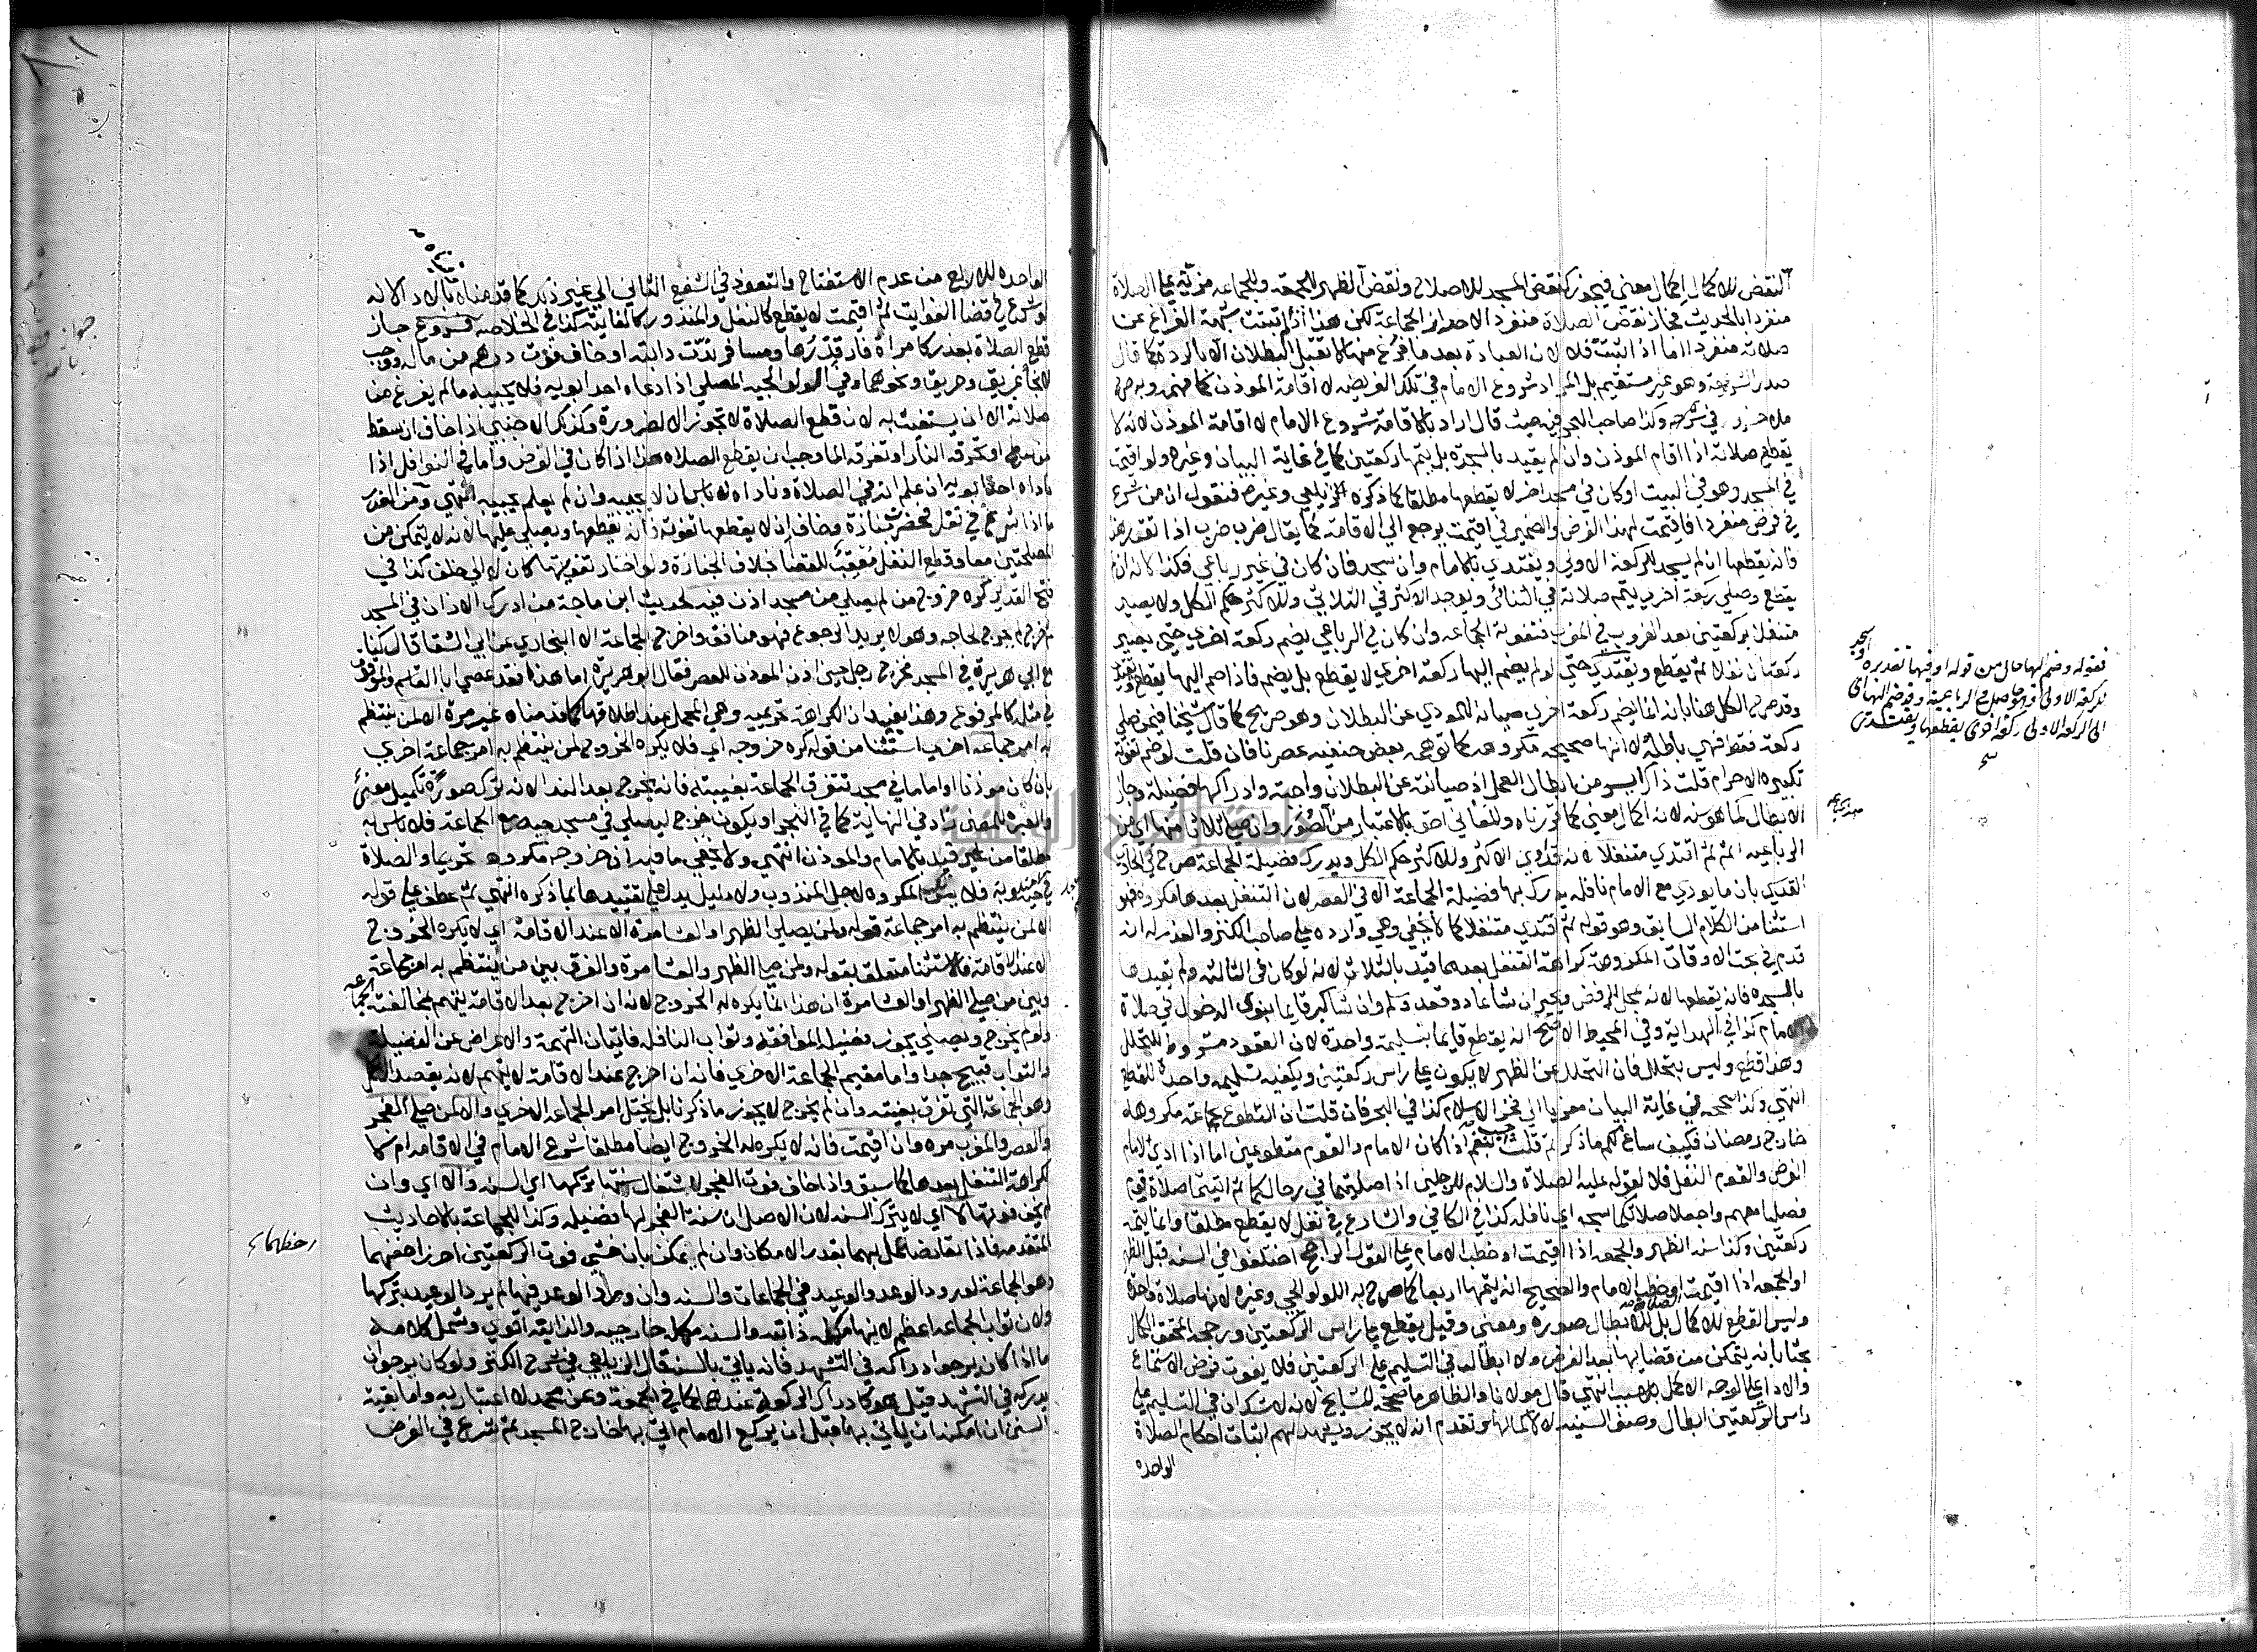 النقض للاكمال اكمال معنى فيجوز كنقض المسجد للاصلاح ونقض الظهر للجمعة وللجماعة مزية على الصلاة
منفردا بالحديث فجاز نقض الصلاة منفردا لاحراز الجماعة لكن هذا اذا لم تثبت شبهة الفراغ عن
صلاته منفردا اما اذا ثبتت فلا لان العبادة بعد ما فرغ منها لا تقبل البطلان الا بالردة كما قال
صدر الشريعة وهو غير مستقيم بل المراد شروع الامام في تلك الفريضه لا اقامة الموذن كما فهمه وبه صرح
ملا خسرو في شرحه وكذا صاحب البحر فيه حيث قال اراد بالاقامة شروع الامام لا اقامة الموذن لانه لا
يقطع صلاته اذا اقام الموذن وان لم يقيد بالسجدة بل يتمها ركعتين كما في غاية البيان وغيره ولو اقيمت
في المسجد وهو في البيت او كان في مسجد اخر لا يقطعها مطلقا كما ذكره الزيلعي وغيره فنقول ان من شرع
في فرض منفردا فاقيمت لهذا الفرض والضمير في اقيمت يرجع الى الاقامة كما يقال ضرب ضرب اذا تقرر هذا
فانه يقطعها ان لم يسجد للركعة الاولى ويقتدي بالامام وان سجد فان كان في غير رباعي فكذا لانه ان لم
يقطع وصلى ركعة اخرى يتم صلاته في الثنائي ويوجد الاكثر في الثلاثي وللاكثر حكم الكل ولا يصير
متنفلا بركعتين بعد الغروب في المغرب فتفوته الجماعة وان كان في الرباعي يضم ركعة اخرى حتى يصير
ركعتان نفلا ثم يقطع ويقتدي حتى لو لم يضم اليها ركعة اخرى لا يقطع بل يضم فاذا ضم اليها يقطع ويقتدي
وقد صرح الكل هنا بانه انما يضم ركعة اخرى صيانة للمودي عن البطلان وهو صريح كما قال شيخنا فيمن صلى
ركعة فقط فهي باطلة لا انها صحيحه مكروهة كما توهمه بعض حنفيه عصرنا فان قلت لو ضم تفوته
تكبيرة الاحرام قلت ذاك ايسر من ابطال العمل اذ صيانته عن البطلان واجبة وادراكها فضيلة وجاز
الابطال لما هو سنه لانه اكمال معنى كما قررناه والمعاني احق بالاعتبار من الصور وان صلى ثلاثا منها اي من
الرباعيه اتم ثم اقتدى متنفلا لانه قد ادى الاكثر وللاكثر حكم الكل ويدرك فضيلة الجماعة صرح في الحاوي
القدسي بان ما يودي مع الامام نافله يدرك بها فضيلة الجماعة الا في العصر لان التنفل بعدها مكروه فهو
استثنا من الكلام السابق وهو قوله ثم اقتدى متنفلا كما لا يخفى وهي وارده على صاحب الكنز والعذر له انه
قدم في بحث الاوقات المكروهة كراهة التنفل بعدها قيد بالثلاث لانه لو كان في الثالثه ولم يقيدها
بالسجدة فانه يقطعها لانه بمحل الرفض ويخير ان شا عاد وقعد وسلم وان شا كبر قايما ينوي الدخول في صلاة
الامام كذا في الهداية وفي المحيط الاصح انه يقطع قايما بتسليمة واحدة لان القعود مشروط للتحلل
وهذا قطع وليس بتحلل فان التحلل عن الظهر لا يكون على راس ركعتين ويكفيه تسليمه واحدة للقطع
انتهى وكذا صححه في غاية البيان معزيا الى فخر الاسلام كذا في البحر فان قلت ان التطوع بجماعة مكروهة
خارج رمضان فكيف ساغ لكم ما ذكرتم قلت نعم اذا كان الامام والقوم متطوعين اما اذا ادى الامام
الفرض والقوم النفل فلا لقوله عليه الصلاة والسلام للرجلين اذا صليتما في رحالكما ثم اتيتما صلاة قوم
فصليا معهم واجعلا صلاتكما سبحه اي نافله كذا في الكافي والشارع في نفل لا يقطع مطلقا وانما يتمه
ركعتين وكذا سنة الظهر والجمعه اذا اقيمت او خطب الامام على القول الراجح اختلفوا في السنه قبل الظهر
او الجمعه اذا اقيمت او خطب الامام والصحيح انه يتمها اربعا كما صرح به الولوالجي وغيره لانها صلاة واحدة
وليس القطع للاكمال بل للابطال صورة ومعنى وقيل يقطع على راس الركعتين ورجحه المحقق الكمال
بحثا بانه يتمكن من قضايها بعد الفرض ولا ابطال في التسليم على الركعتين فلا يفوت فرض الاستماع
والادا على الوجه الاكمل بلا سبب انتهى قال مولانا والظاهر ما صححه المشايخ لانه لا شك ان في التسليم على
راس الركعتين ابطال وصف السنيه لا لاكمالها وتقدم انه لا يجوز ويشهد لهم اثبات احكام الصلاة
الواحده
فقوله وضم اليها حال من قوله او فيها تقديره وسجد
للركعة الاولى وهو حاصل في الرباعية وقد ضم اليها اي
الى الركعة الاولى ركعة اخرى يقطعها ويقتدي
الواحده للاربع من عدم الاستفتاح والتعوذ في الشفع الثاني الى غير ذلك كما قدمناه قيد بالاداء لانه
لو شرع في قضا الفوايت ثم اقيمت لا يقطع كالنفل والمنذور كالفايتة كذا في الخلاصه فروع جاز
قطع الصلاة بعذر كامراة فار قدرها ومسافر ندت دابته او خاف فوت درهم من ماله ووجب
لانجا غريق وحريق ونحوهما وفي الولوالجيه المصلي اذا دعاه احد ابويه فلا يجيبه ما لم يفرغ من
صلاته الا ان يستغيث به لان قطع الصلاة لا تجوز الا لضرورة وكذلك الاجنبي اذا خاف ان يسقط
من سطح او تحرقه النار او تغرقه الما وجب ان يقطع الصلاه هذا اذا كان في الفرض واما في النوافل اذا
ناداه احد ابويه ان علم انه في الصلاة وناداه لا باس ان لا يجيبه وان لم يعلم يجيبه انتهى ومن العذر
ما اذا شرع في نفل فحضرت جنازة وخاف ان لا يقطعها تفوته فانه يقطعها ويصلي عليها لانه لا يتمكن من
المصلحتين معا وقطع النفل معقب للقضا بخلاف الجنازة ولو اختار تفويتها كان لا الى خلف كذا في
فتح القدير كره خروج من لم يصلي من مسجد اذن فيه لحديث ابن ماجة من ادرك الاذان في المسجد
ثم خرج لم يخرج لحاجه وهو لا يريد الرجوع فهو منافق واخرج الجماعة الا البخاري عن ابي الشعثا قال كنا
مع ابي هريرة في المسجد فخرج رجل حين اذن الموذن للعصر فقال ابو هريرة اما هذا فقد عصى ابا القاسم والموقوف
في مثله كالمرفوع وهذا يفيد ان الكراهة تحريميه وهي المحمل عند اطلاقها كما قدمناه غير مرة الا لمن ينتظم
به امر جماعه اخرى استثنا من قوله كره خروجه اي فلا يكره الخروج لمن ينتظم به امر جماعة اخرى
بان كان موذنا او اماما في مسجد تتفرق الجماعة بغيبته فانه يخرج بعد الندا لانه ترك صورة تكميل معنى
والعبرة للمعنى زاد في النهاية كما في البحر او يكون خرج ليصلي في مسجد حيه مع الجماعة فلا باس به
مطلقا من غير قيد بالامام والموذن انتهى ولا يخفى ما فيه اذ خروجه مكروه تحريما والصلاة
في حيه مندوبة فلا يرتكب المكروه لاجل المندوب ولا دليل يدل على تقييدها بما ذكره انتهى ثم عطف على قوله
الا لمن ينتظم به امر جماعة قوله ولمن يصلي الظهر او العشا مرة الا عند الاقامة اي لا يكره الخروج
الا عند الاقامة فالاستثنا متعلق بقوله ولمن صلى الظهر والعشا مرة والفرق بين من ينتظم به امر جماعة
وبين من صلى الظهر او العشا مرة ان هذا انما يكره له الخروج لانه ان خرج بعد الاقامة يتهم بمخالفة الجماعة
ولو لم يخرج ويصلي يحوز فضيلة الموافقة وثواب النافله فاتيان التهمة والاعراض عن الفضيلة
والثواب قبيح جدا واما مقيم الجماعة الاخرى فانه ان خرج عند الاقامة لا يتهم لانه يقصد الاكمال
وهو الجماعة التي تفرق بغيبته وان لم يخرج لا يحوز ما ذكرنا بل يختل امر الجماعه الاخرى والا لمن صلى الفجر
والعصر والمغرب مره وان اقيمت فانه لا يكره له الخروج ايضا مطلقا شرع الامام في الاقامه ام لا
لكراهة التنفل بعدها كما سبق واذا خاف فوت الفجر لاشتغاله بسنتها تركها اي السنه والا اي وان
لم يخف فوتها لا اي لا يترك السنه لان الاصل ان سنة الفجر لها فضيله وكذا للجماعة بالاحاديث
المتقدمه فاذا تعارضا عمل بهما بقدر الامكان وان لم يمكن بان خشي فوت الركعتين احرز احقهما
وهو الجماعة لورود الوعد والوعيد في الجماعات والسنه وان ورد الوعد فيها لم يرد الوعيد بتركها
ولان ثواب الجماعه اعظم لانها مكمله ذاتيه والسنه مكمله خارجيه والذاتيه اقوى وشمل كلامه
ما اذا كان يرجوا ادراكه في التشهد فانه ياتي بالسنة قال الزيلعي في شرح الكنز ولو كان يرجو ان
يدركه في التشهد قيل هو كادراك الركعة عندهما كما في الجمعة وعن محمد لا اعتبار به واما بقية
السنن ان امكنه ان ياتي بها قبل ان يركع الامام اتى بها خارج المسجد ثم شرع في الفرض